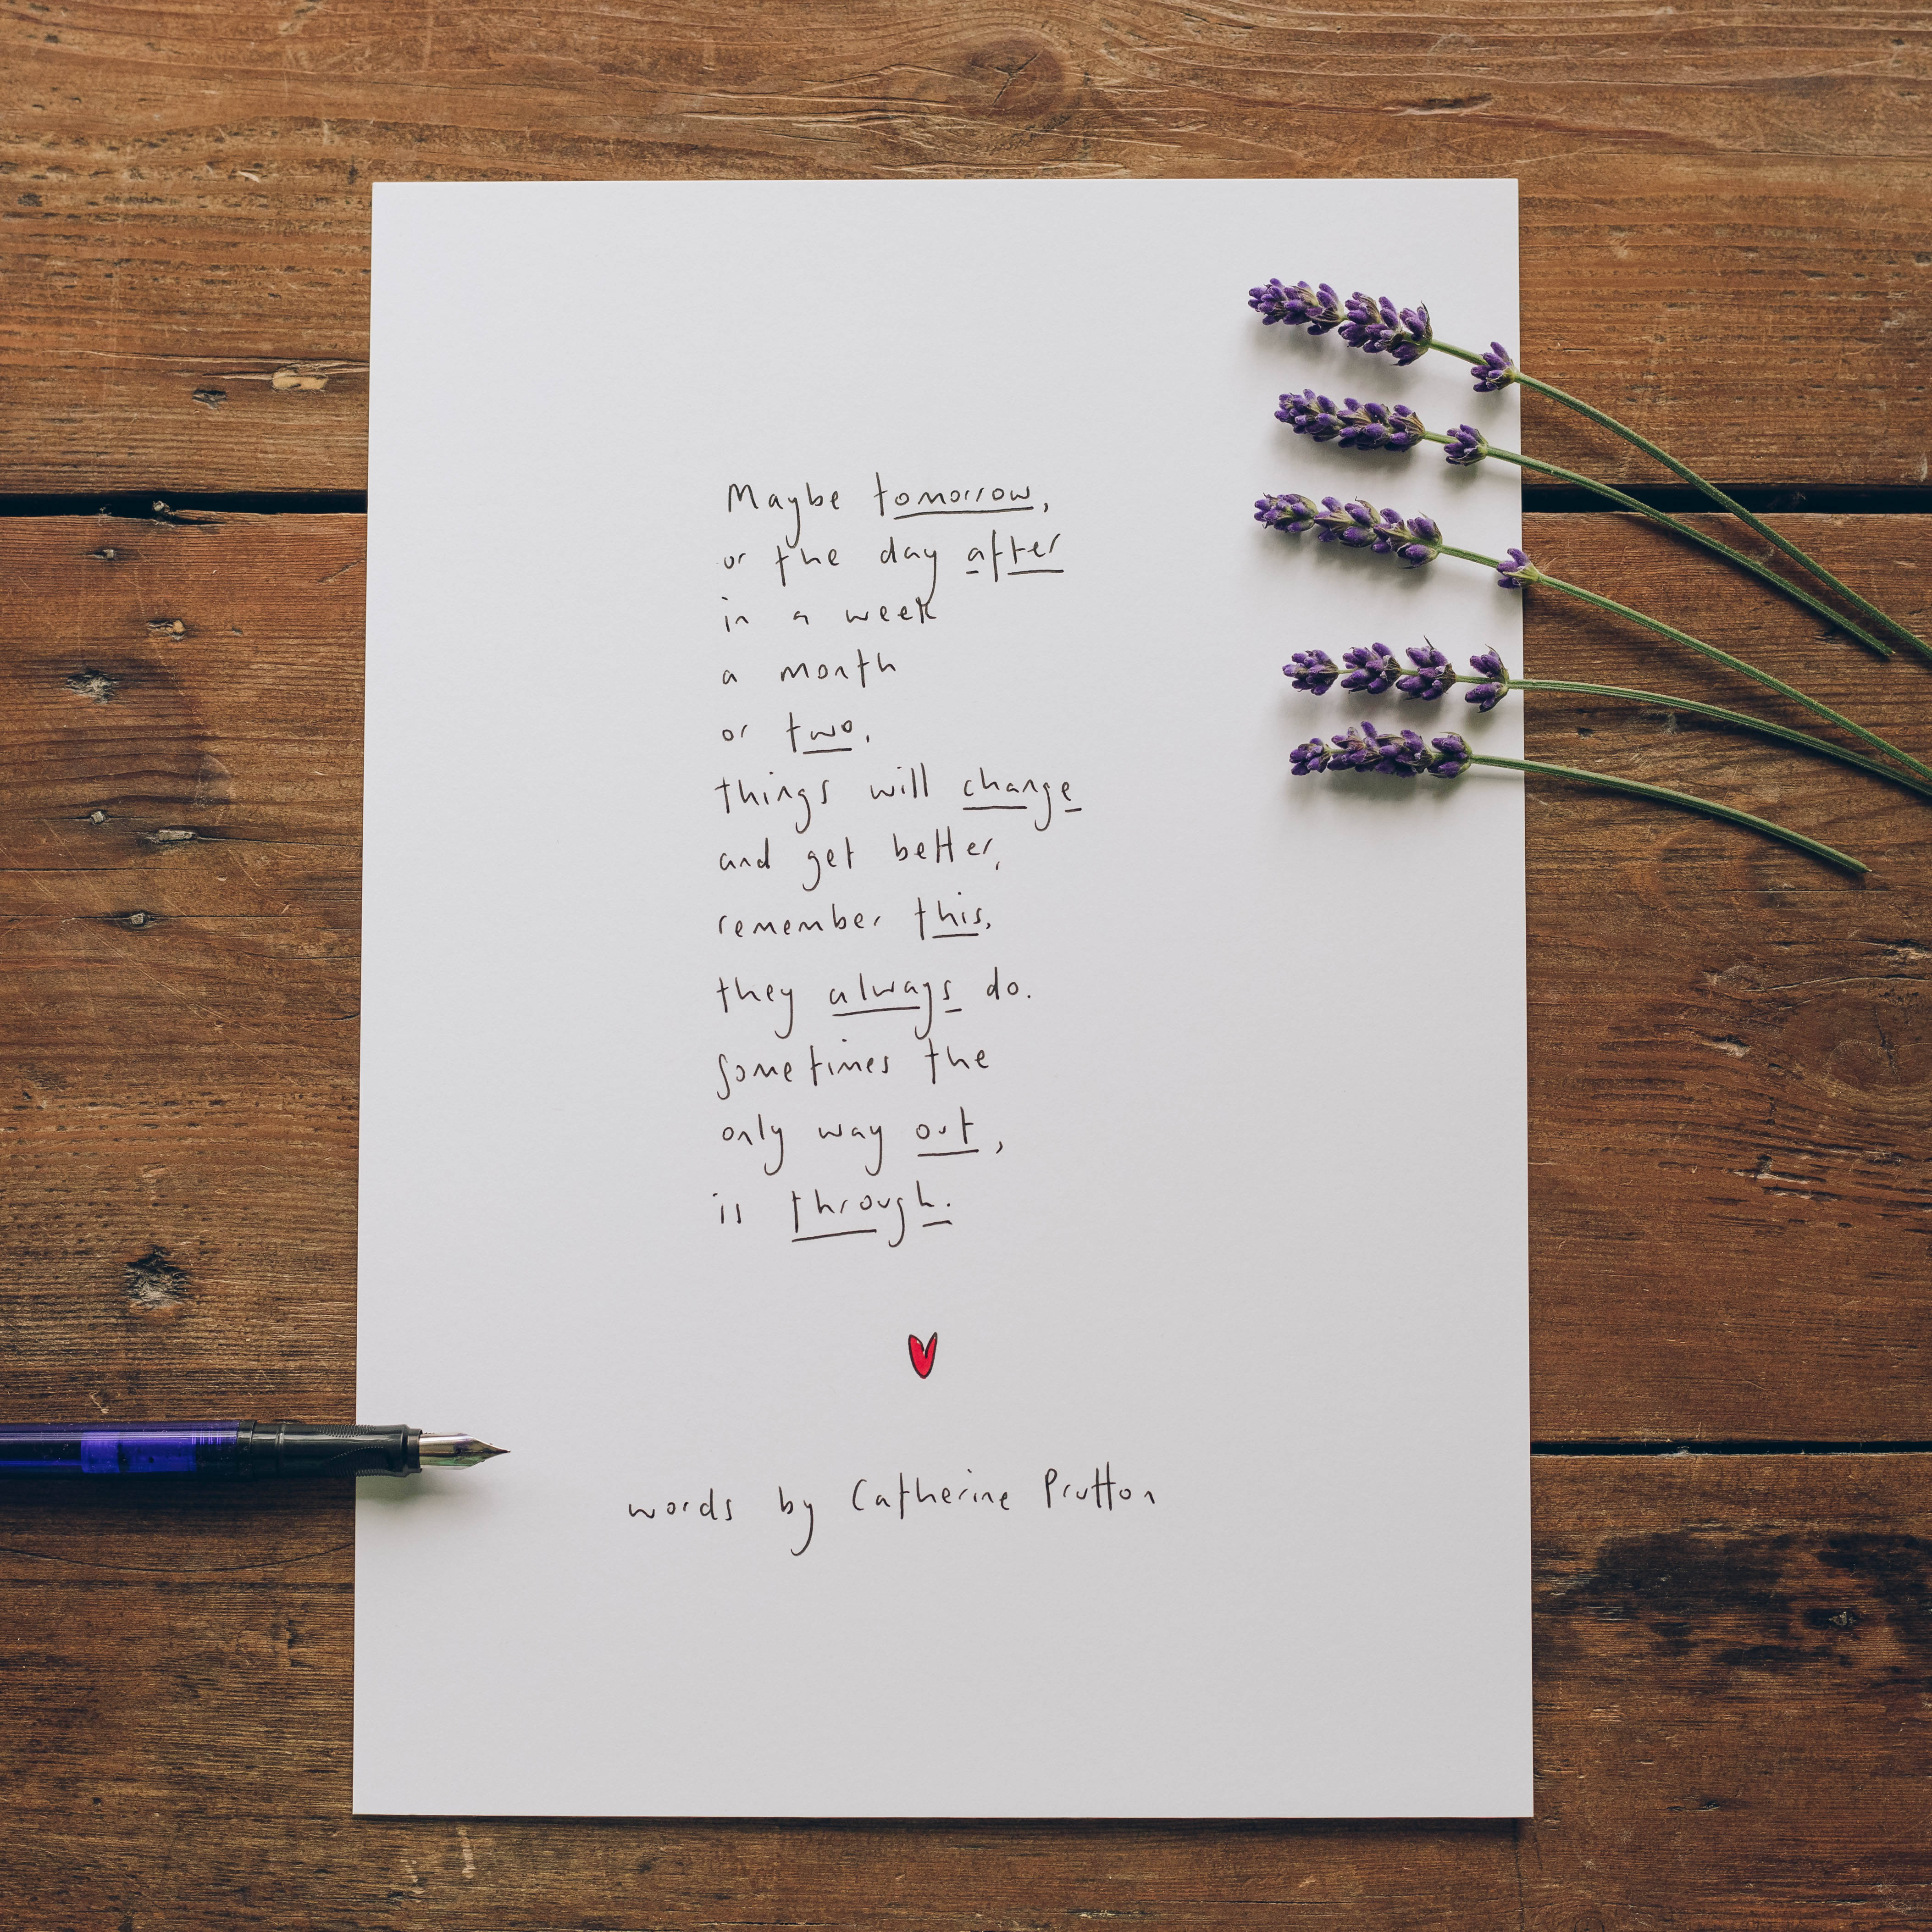 Maybe tomorrow,
or the day after
in a week
a month
or two,
things will change
and get better,
remember this,
they always do.
Sometimes the
only way out,
is through.
words by Catherine Prutton